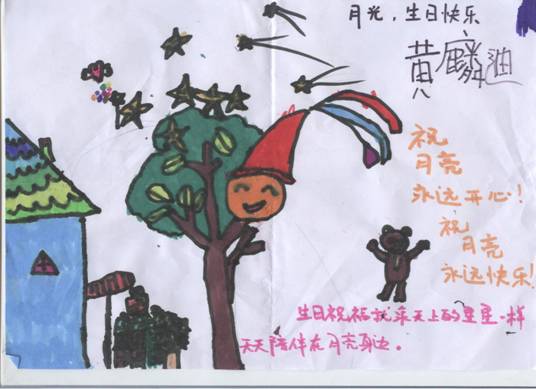 月光，生日快乐
黄麟迪
祝
月亮
永远开心！
祝
月亮
永远快乐！
生日祝福就来天上的星星一样
天天陪伴在月亮身边。